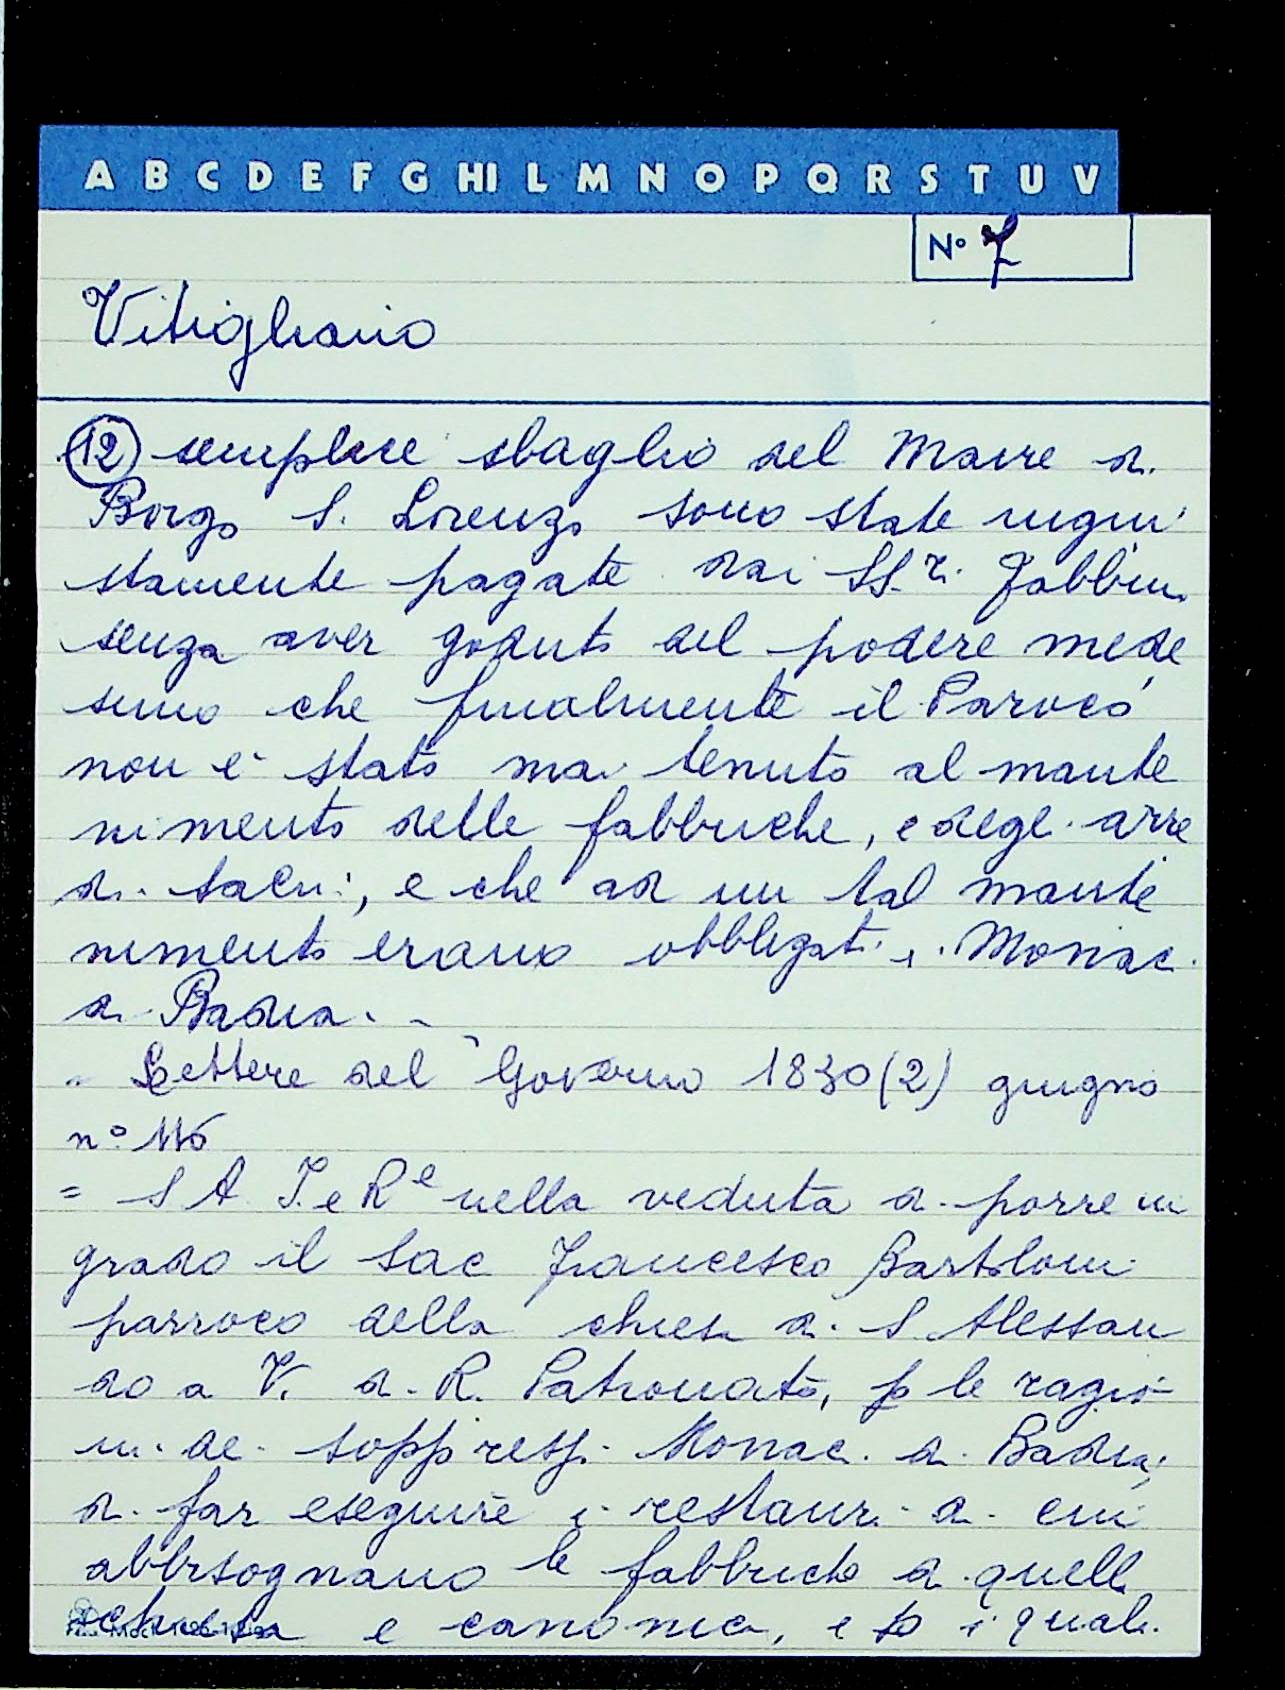 A B C D E F G HI L M N O P Q R S T U V
N° 7
Vitigliano
(12) semplice sbaglio del Maire di
Borgo S. Lorenzo sono state ingiu
stamente pagate dai SS.ri Fabbrini
senza aver goduto del podere mede
simo che finalmente il Paroco
non è stato mai tenuto al mante
nimento delle fabbriche, e degli arre
di sacri, e che ad un tal mante
nimento erano obbligati i Monaci
di Badia.
" Lettere del Governo 1830 (2) giugno
n° 116
= S A I. e R e nella veduta di porre in
grado il Sac Francesco Bartolomi
parroco della chiesa di S Alessan
dro a V. di R. Patronato, p le ragio
ni dei soppressi Monaci di Badia,
di far eseguire i restauri di cui
abbisognano le fabbriche di quella
chiesa e canonica, e p i quali